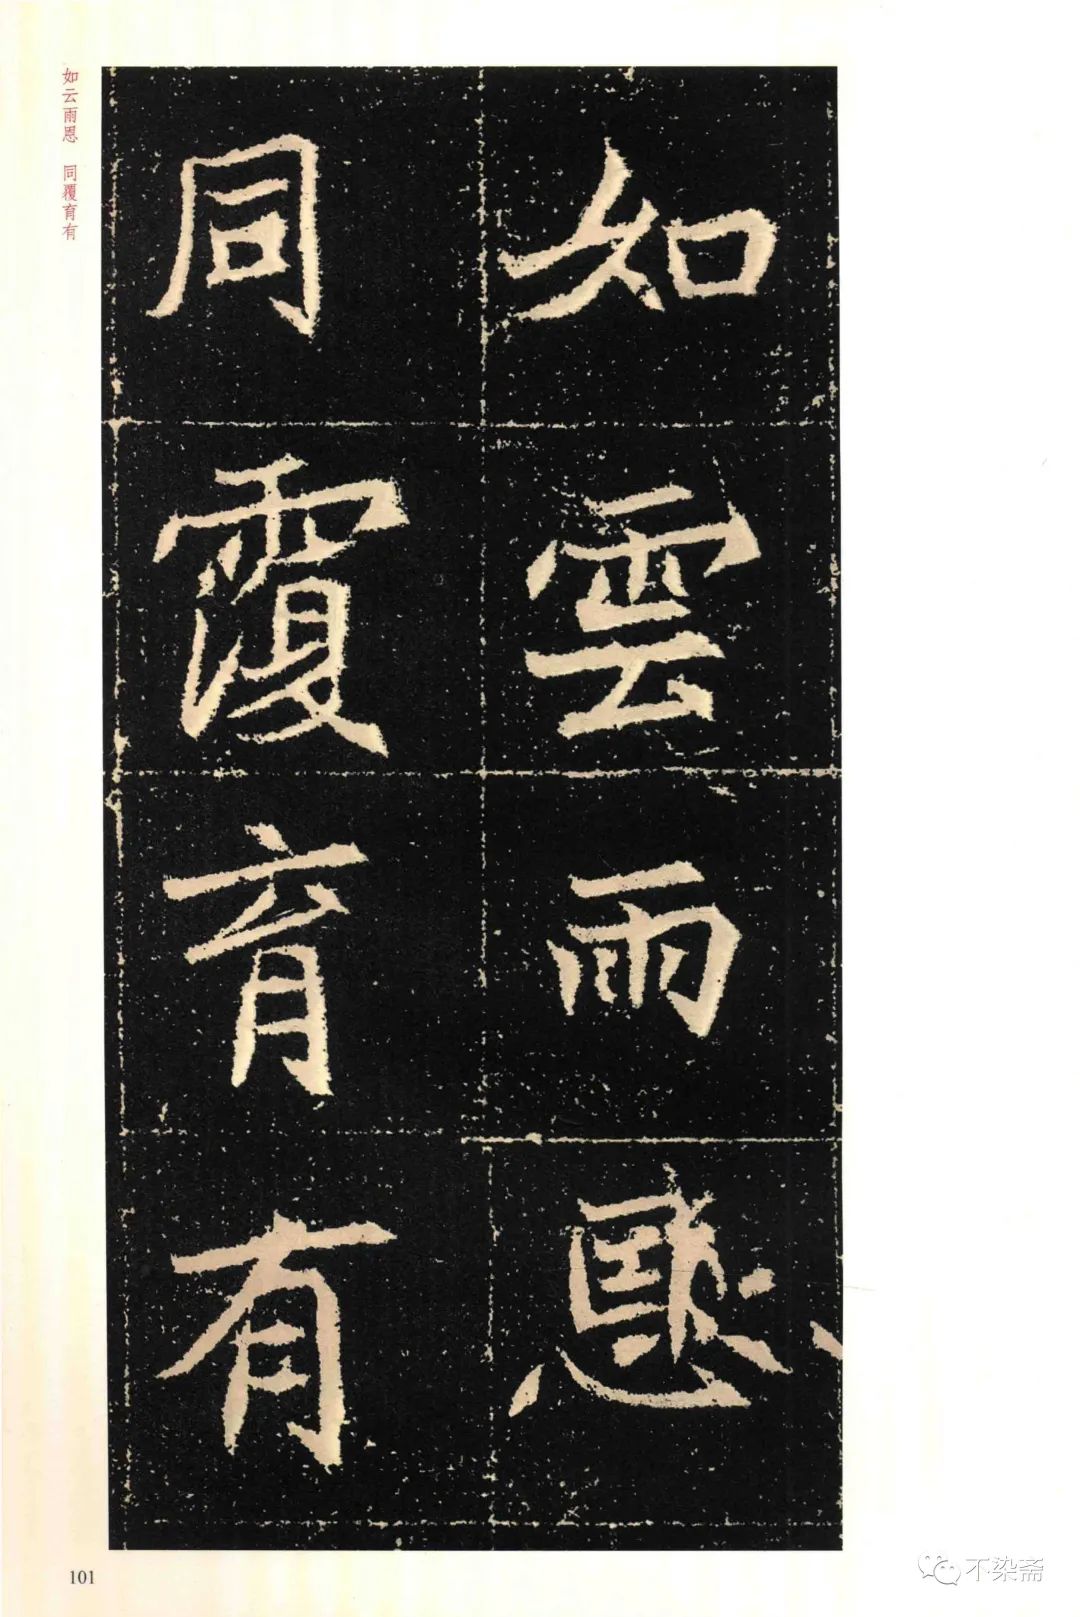 如雲雨恩
同覆育有
如云雨恩 同覆育有
101
不染斋